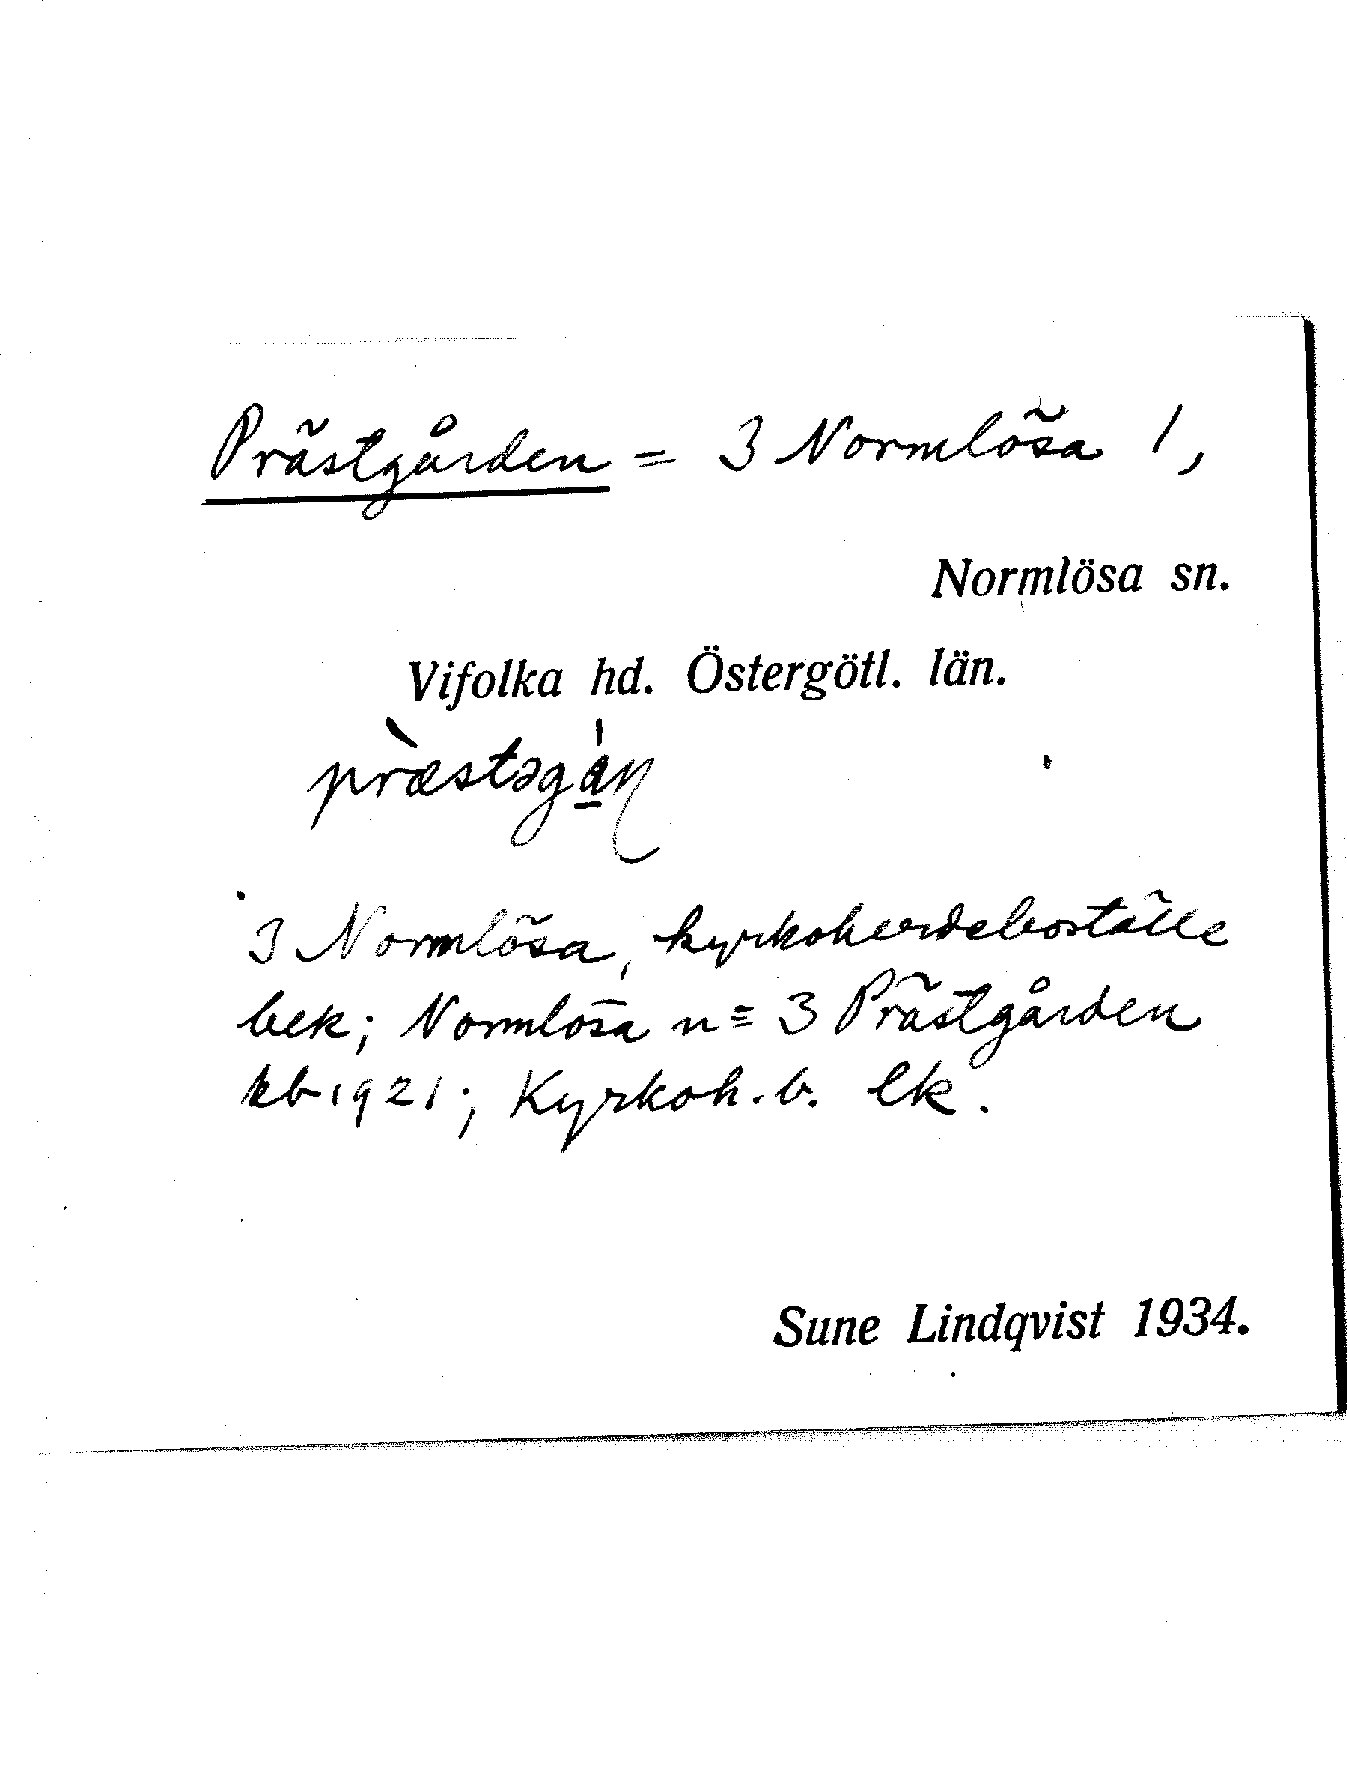 Prästgården = 3 Normlösa 1,
Normlösa sn.
Vifolka hd. Östergötl. län.
præ̀stəgá̠ɳ
3 Normlösa, kyrkoherdeboställe
bek; Normlösa n = 3 Prästgården
kb 1921; Kyrkoh. b. lk.
Sune Lindqvist 1934.